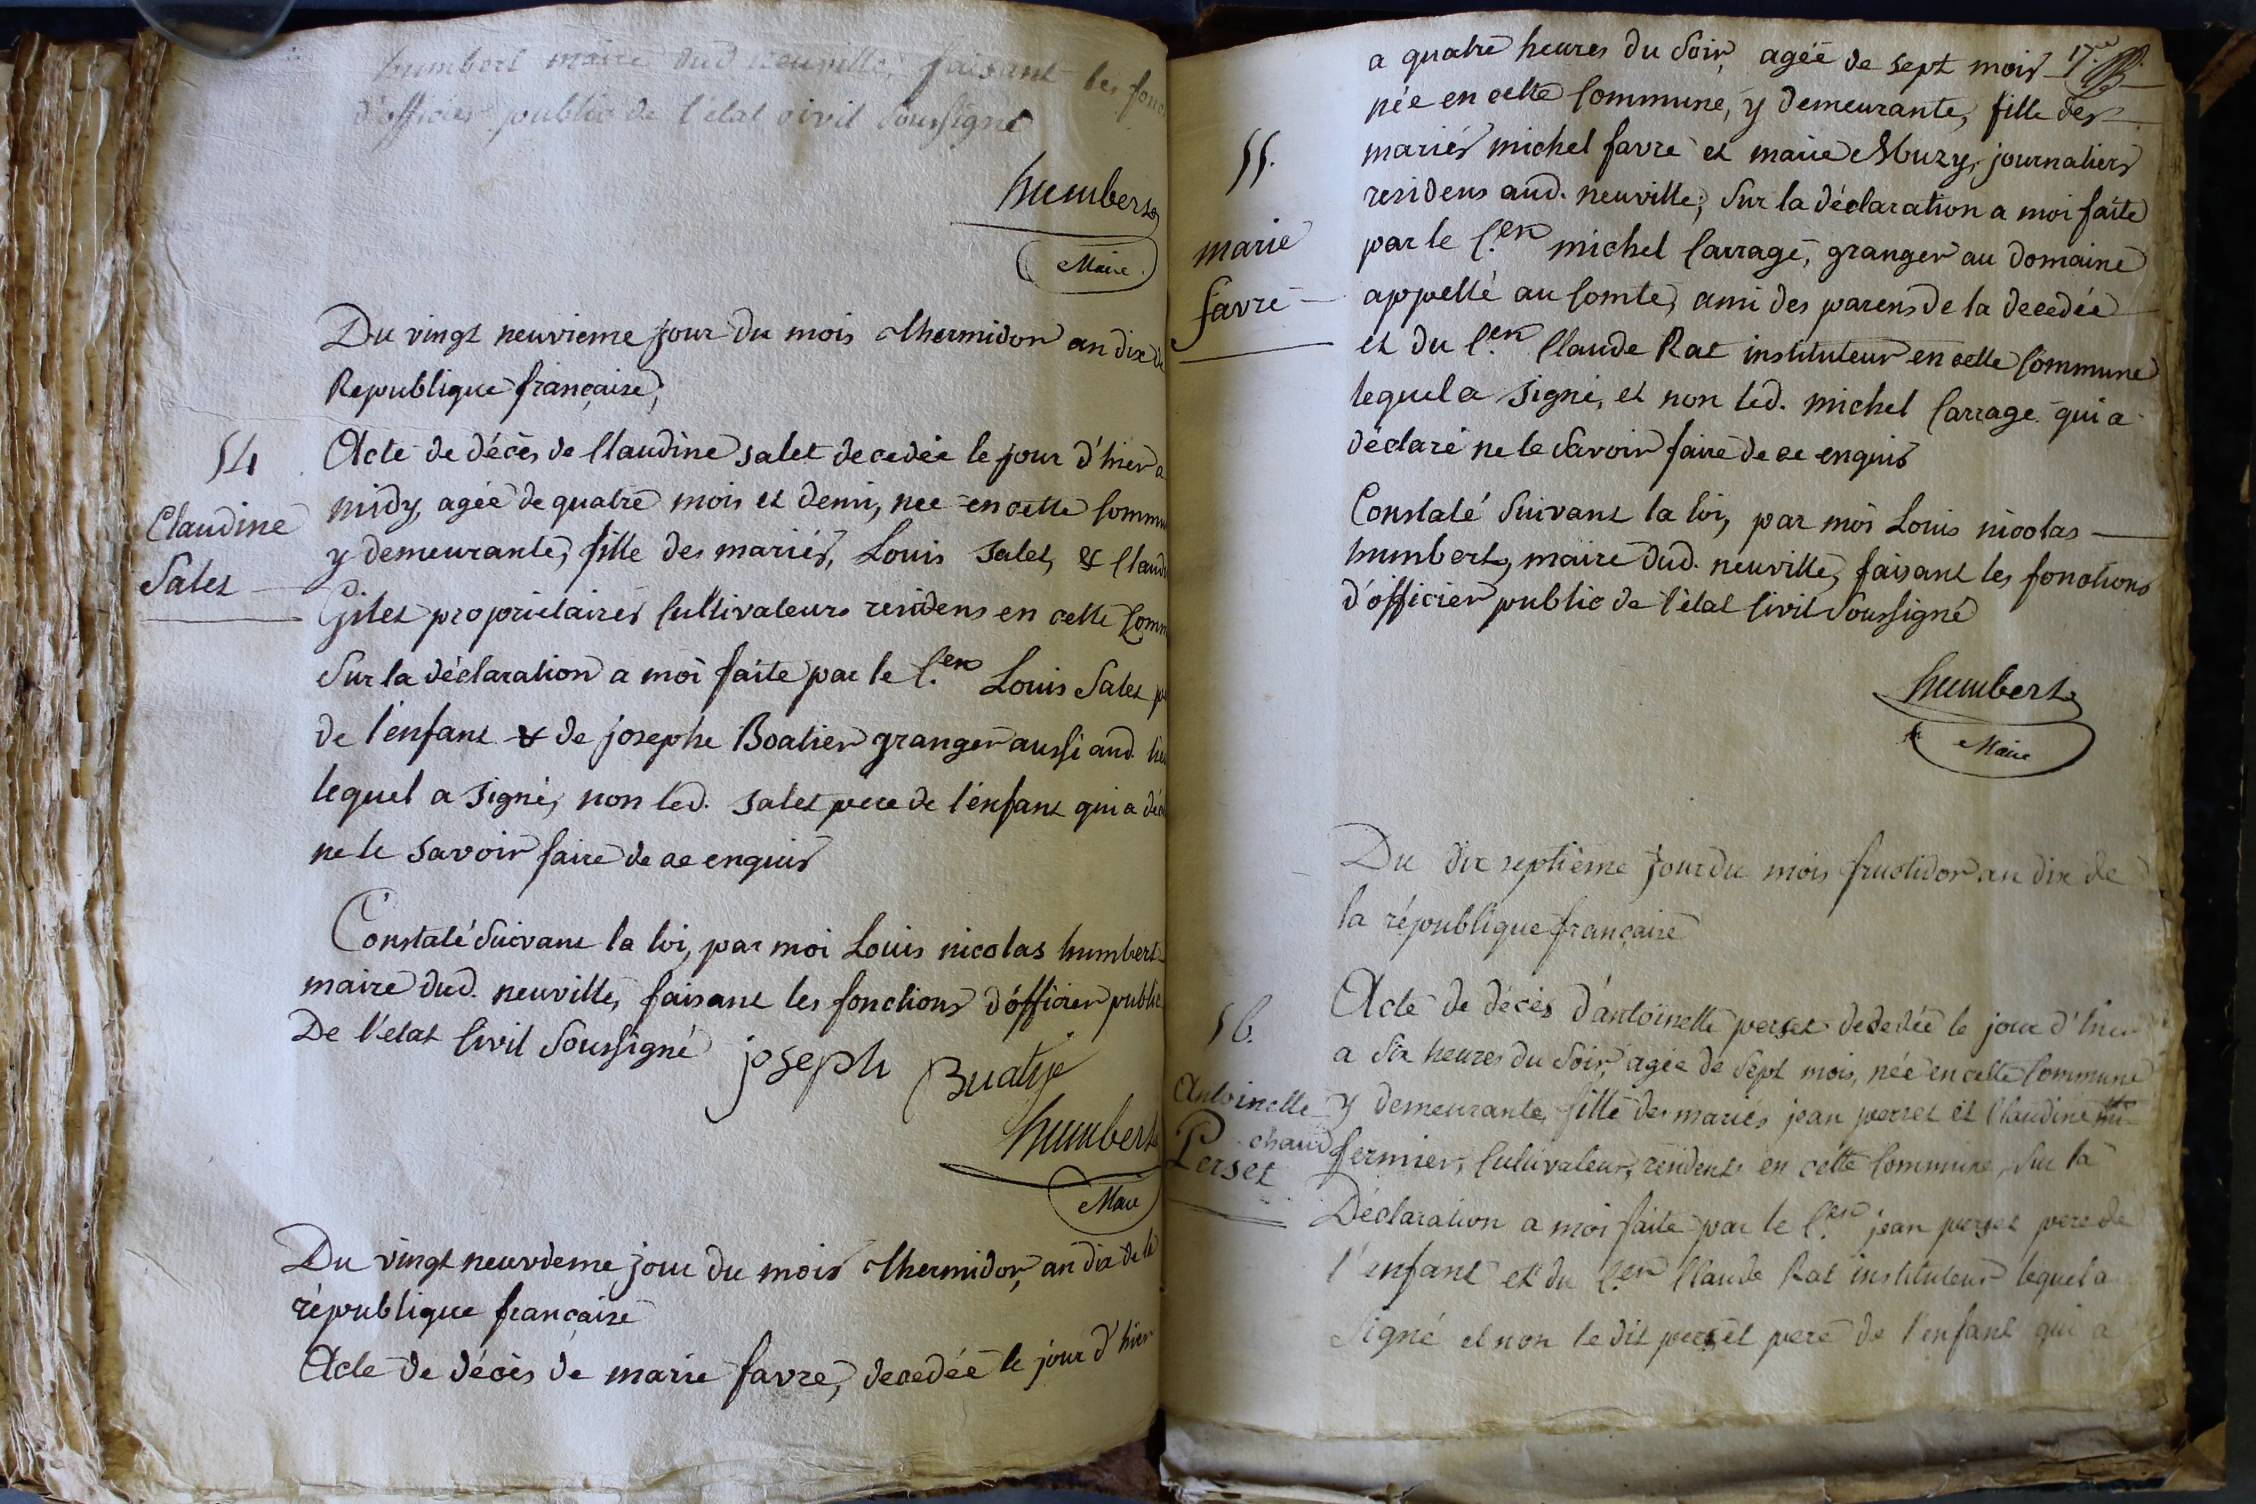 humbert maire dud. neuville, faisant les fonc
d'officier public de l'état civil soussigné
humbert
Maire
Du vingt neuvieme jour du mois thermidor an dix de
Republique française,
54
Claudine
Salet
Acte de décès de Claudine Salet decedée le jour d'hier a
midy, agée de quatre mois et demi, nee en cette Commu
y demeurante, fille des mariés, Louis Salet, & Claud
Gilet proprietaires Cultivateurs residens en cette Comm
Sur la déclaration a moi faite par le C.en Louis Salet p
de l'enfant & de josephe Boatier granger aussi aud. lieu
lequel a signé, non led. Salet pere de l'enfant qui a déc
ne le savoir faire de ce enquis
Constaté suivant la loi, par moi Louis nicolas humbert
maire dud. neuville, faisant les fonctions d'officier public
De l'état Civil Soussigné
joseph Buatije
humbert
Maire
Du vingt neuvieme jour du mois thermidor, an dix de la
république française
Acte de décès de marie favre, decedée le jour d'hier
17.me
a quatre heures du soir, agée de sept mois
née en cette Commune, y demeurante, fille des
55.
marie
favre
mariés michel favre et marie Muzy, journaliers
residens aud. neuville; Sur la déclaration a moi faite
par le C.en michel Carrage, granger au domaine
appellé au Comte, ami des parens de la decedée
et du C.en Claude Rat instituteur en cette Commune
lequel a signé, et non led. michel Carrage qui a
déclaré ne le savoir faire de ce enquis
Constaté suivant la loi, par moi Louis nicolas
humbert, maire dud. neuville, faisant les fonctions
d'officier public de l'état Civil Soussigné
humbert
Maire
Du dix septième jour du mois fructidor an dix de
la république française
56.
Antoinette
Perset
Acte de décès d'antoinette perset décédée le jour d'hier
a six heures du soir, agée de sept mois, née en cette Commune
y demeurante, fille des mariés jean perset et Claudine mi-
chaud fermier, Cultivateur, residents en cette Commune, sur la
Déclaration a moi faite par le C.en jean perset pere de
l'enfant et du C.en Claude Rat instituteur lequel a
signé et non le dit perset pere de l'enfant qui a